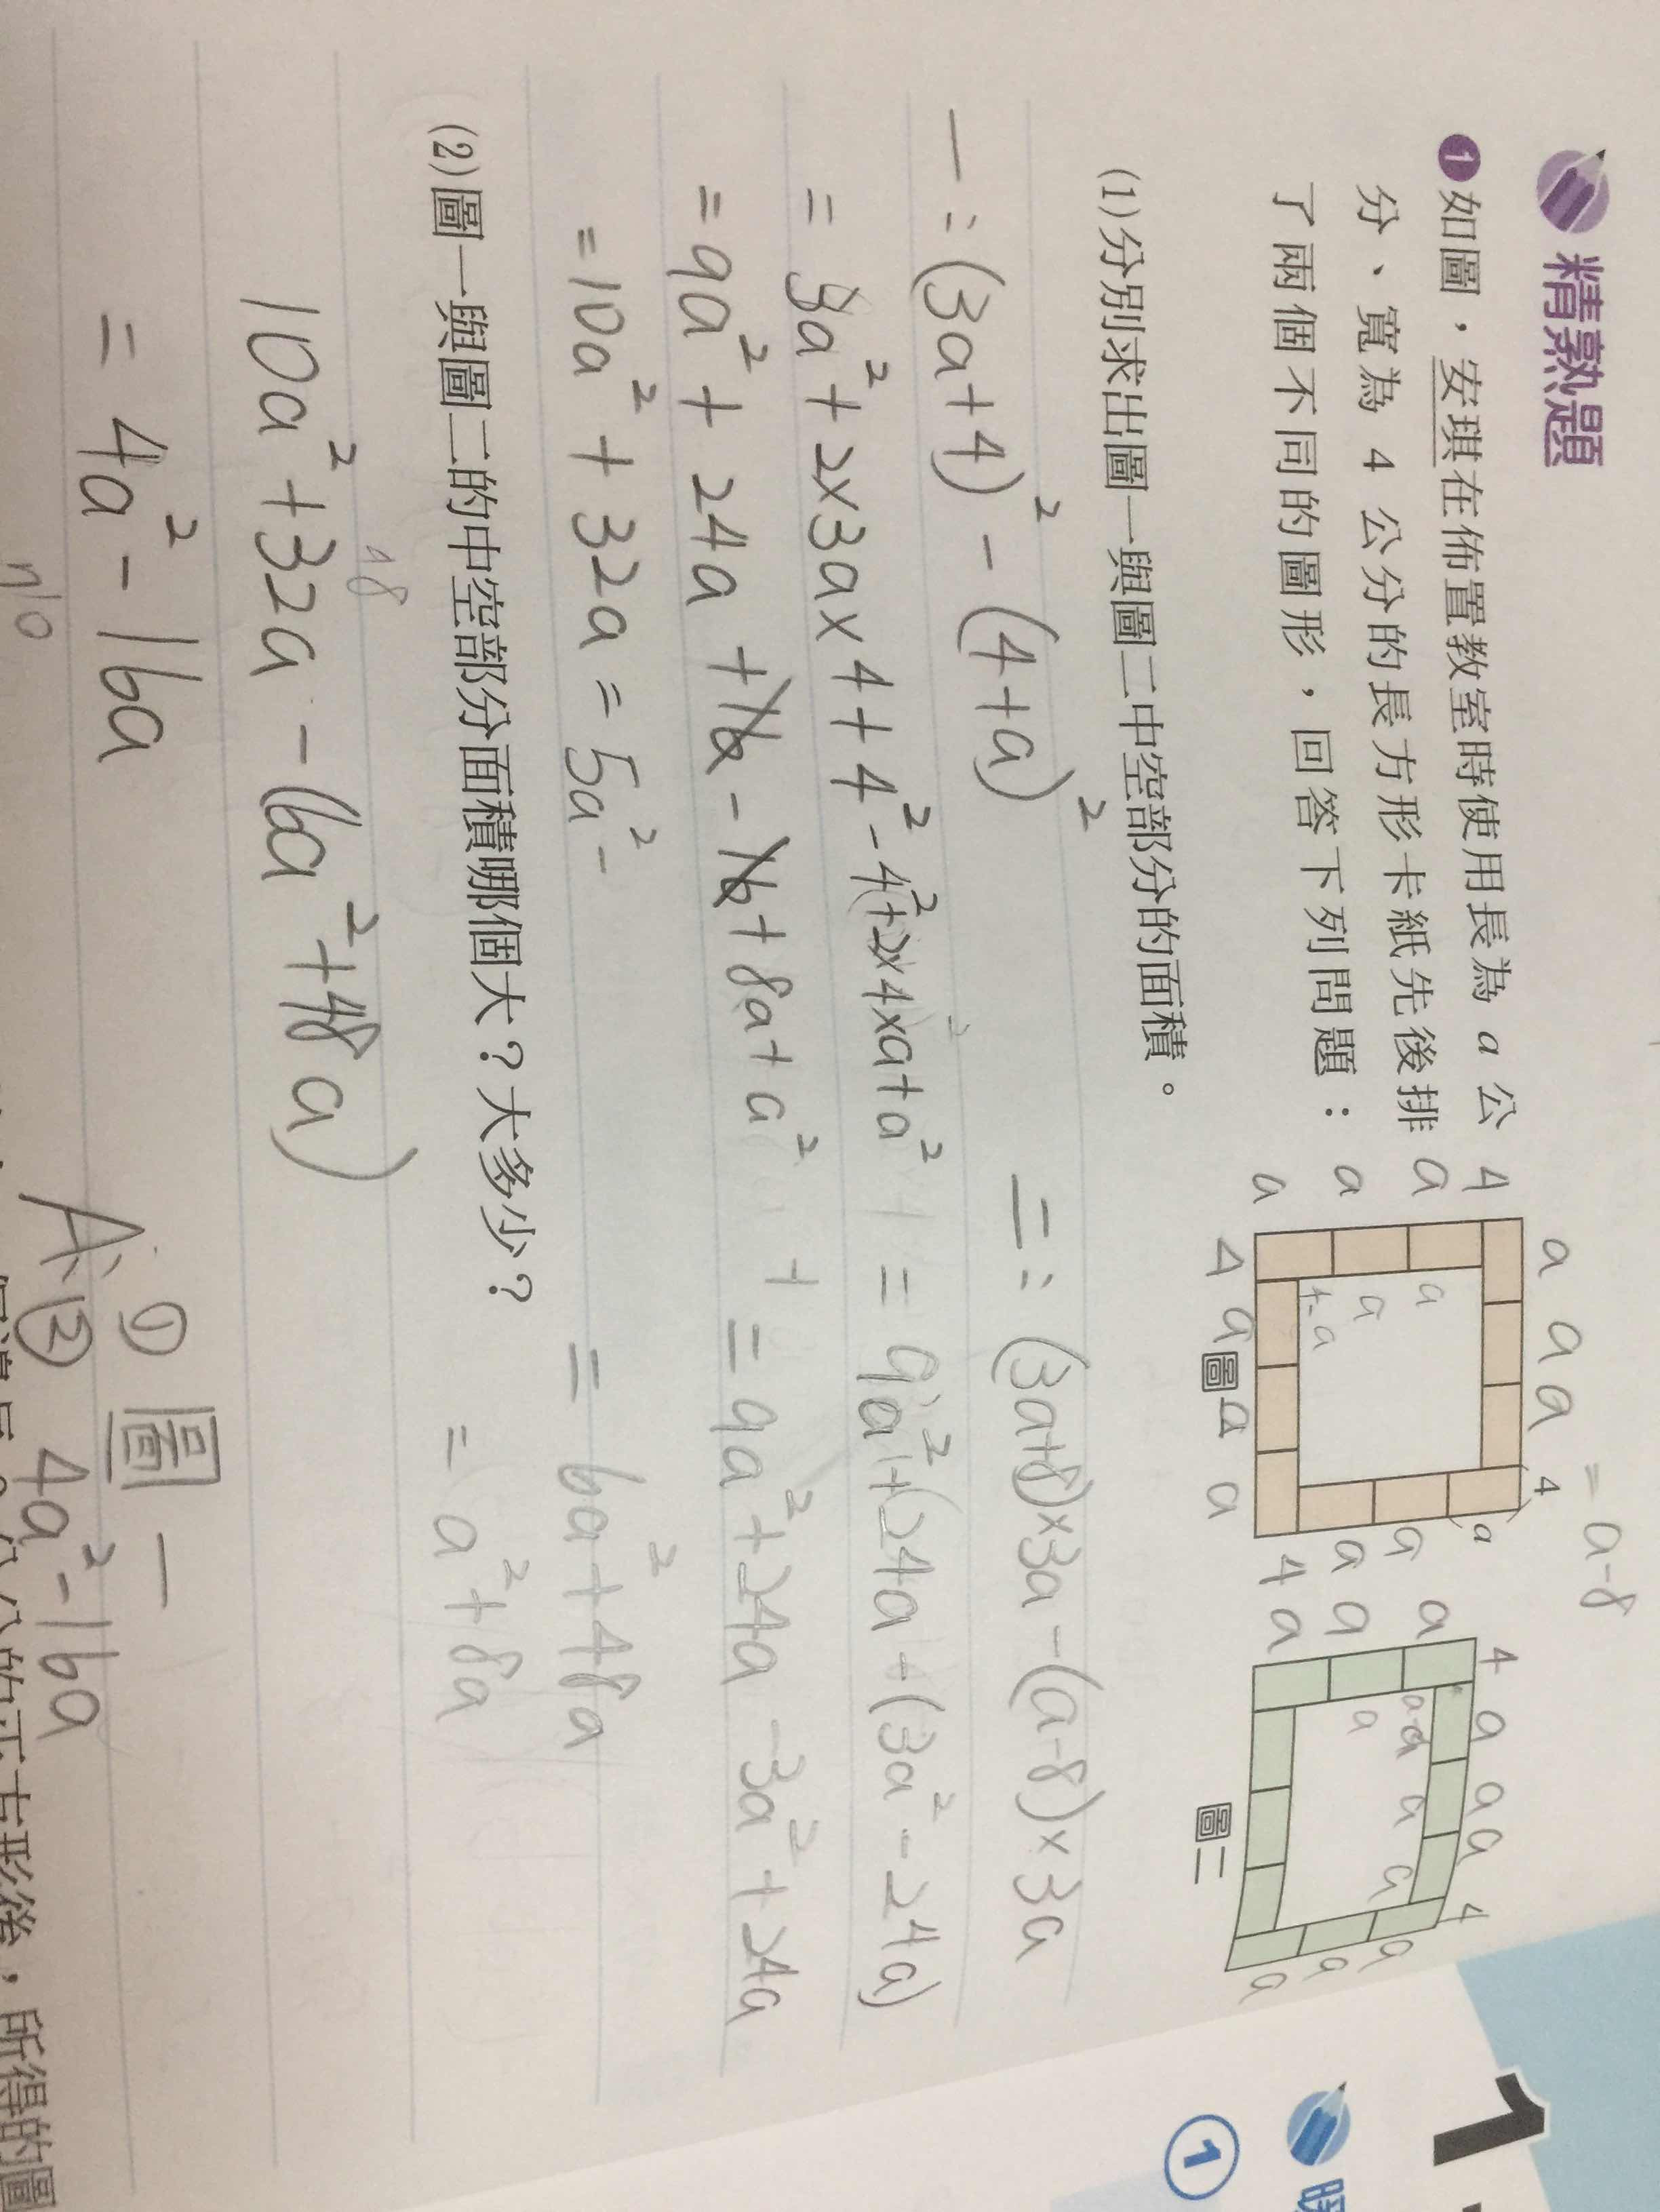 精熟題
❶如圖，安琪在佈置教室時使用長為 a 公
分、寬為 4 公分的長方形卡紙先後排
了兩個不同的圖形，回答下列問題：
= a-8
a a a 4
4 a a a
a a 4+a
4 a a a
a a a 4
圖一
4 a a a 4
a a a
a a a
圖二
(1)分別求出圖一與圖二中空部分的面積。
一：(3a+4)² - (4+a)²
= 9a² + 2×3a×4 + 4² - 4² + 2×4×a + a²
= 9a² + 24a + 16 - 16 + 8a + a²
= 10a² + 32a = 5a² -
二：(3a+8)×3a - (a-8)×3a
= 9a² + 24a + (3a² - 24a)
= 9a² + 24a - 3a² + 24a
= 6a² + 48a
= a² + 8a
(2)圖一與圖二的中空部分面積哪個大？大多少？
10a² + 32a - (6a² + 48a)
= 4a² - 16a
A: ① 圖一
② 4a² - 16a
的正方形後，所得的圖
1
①